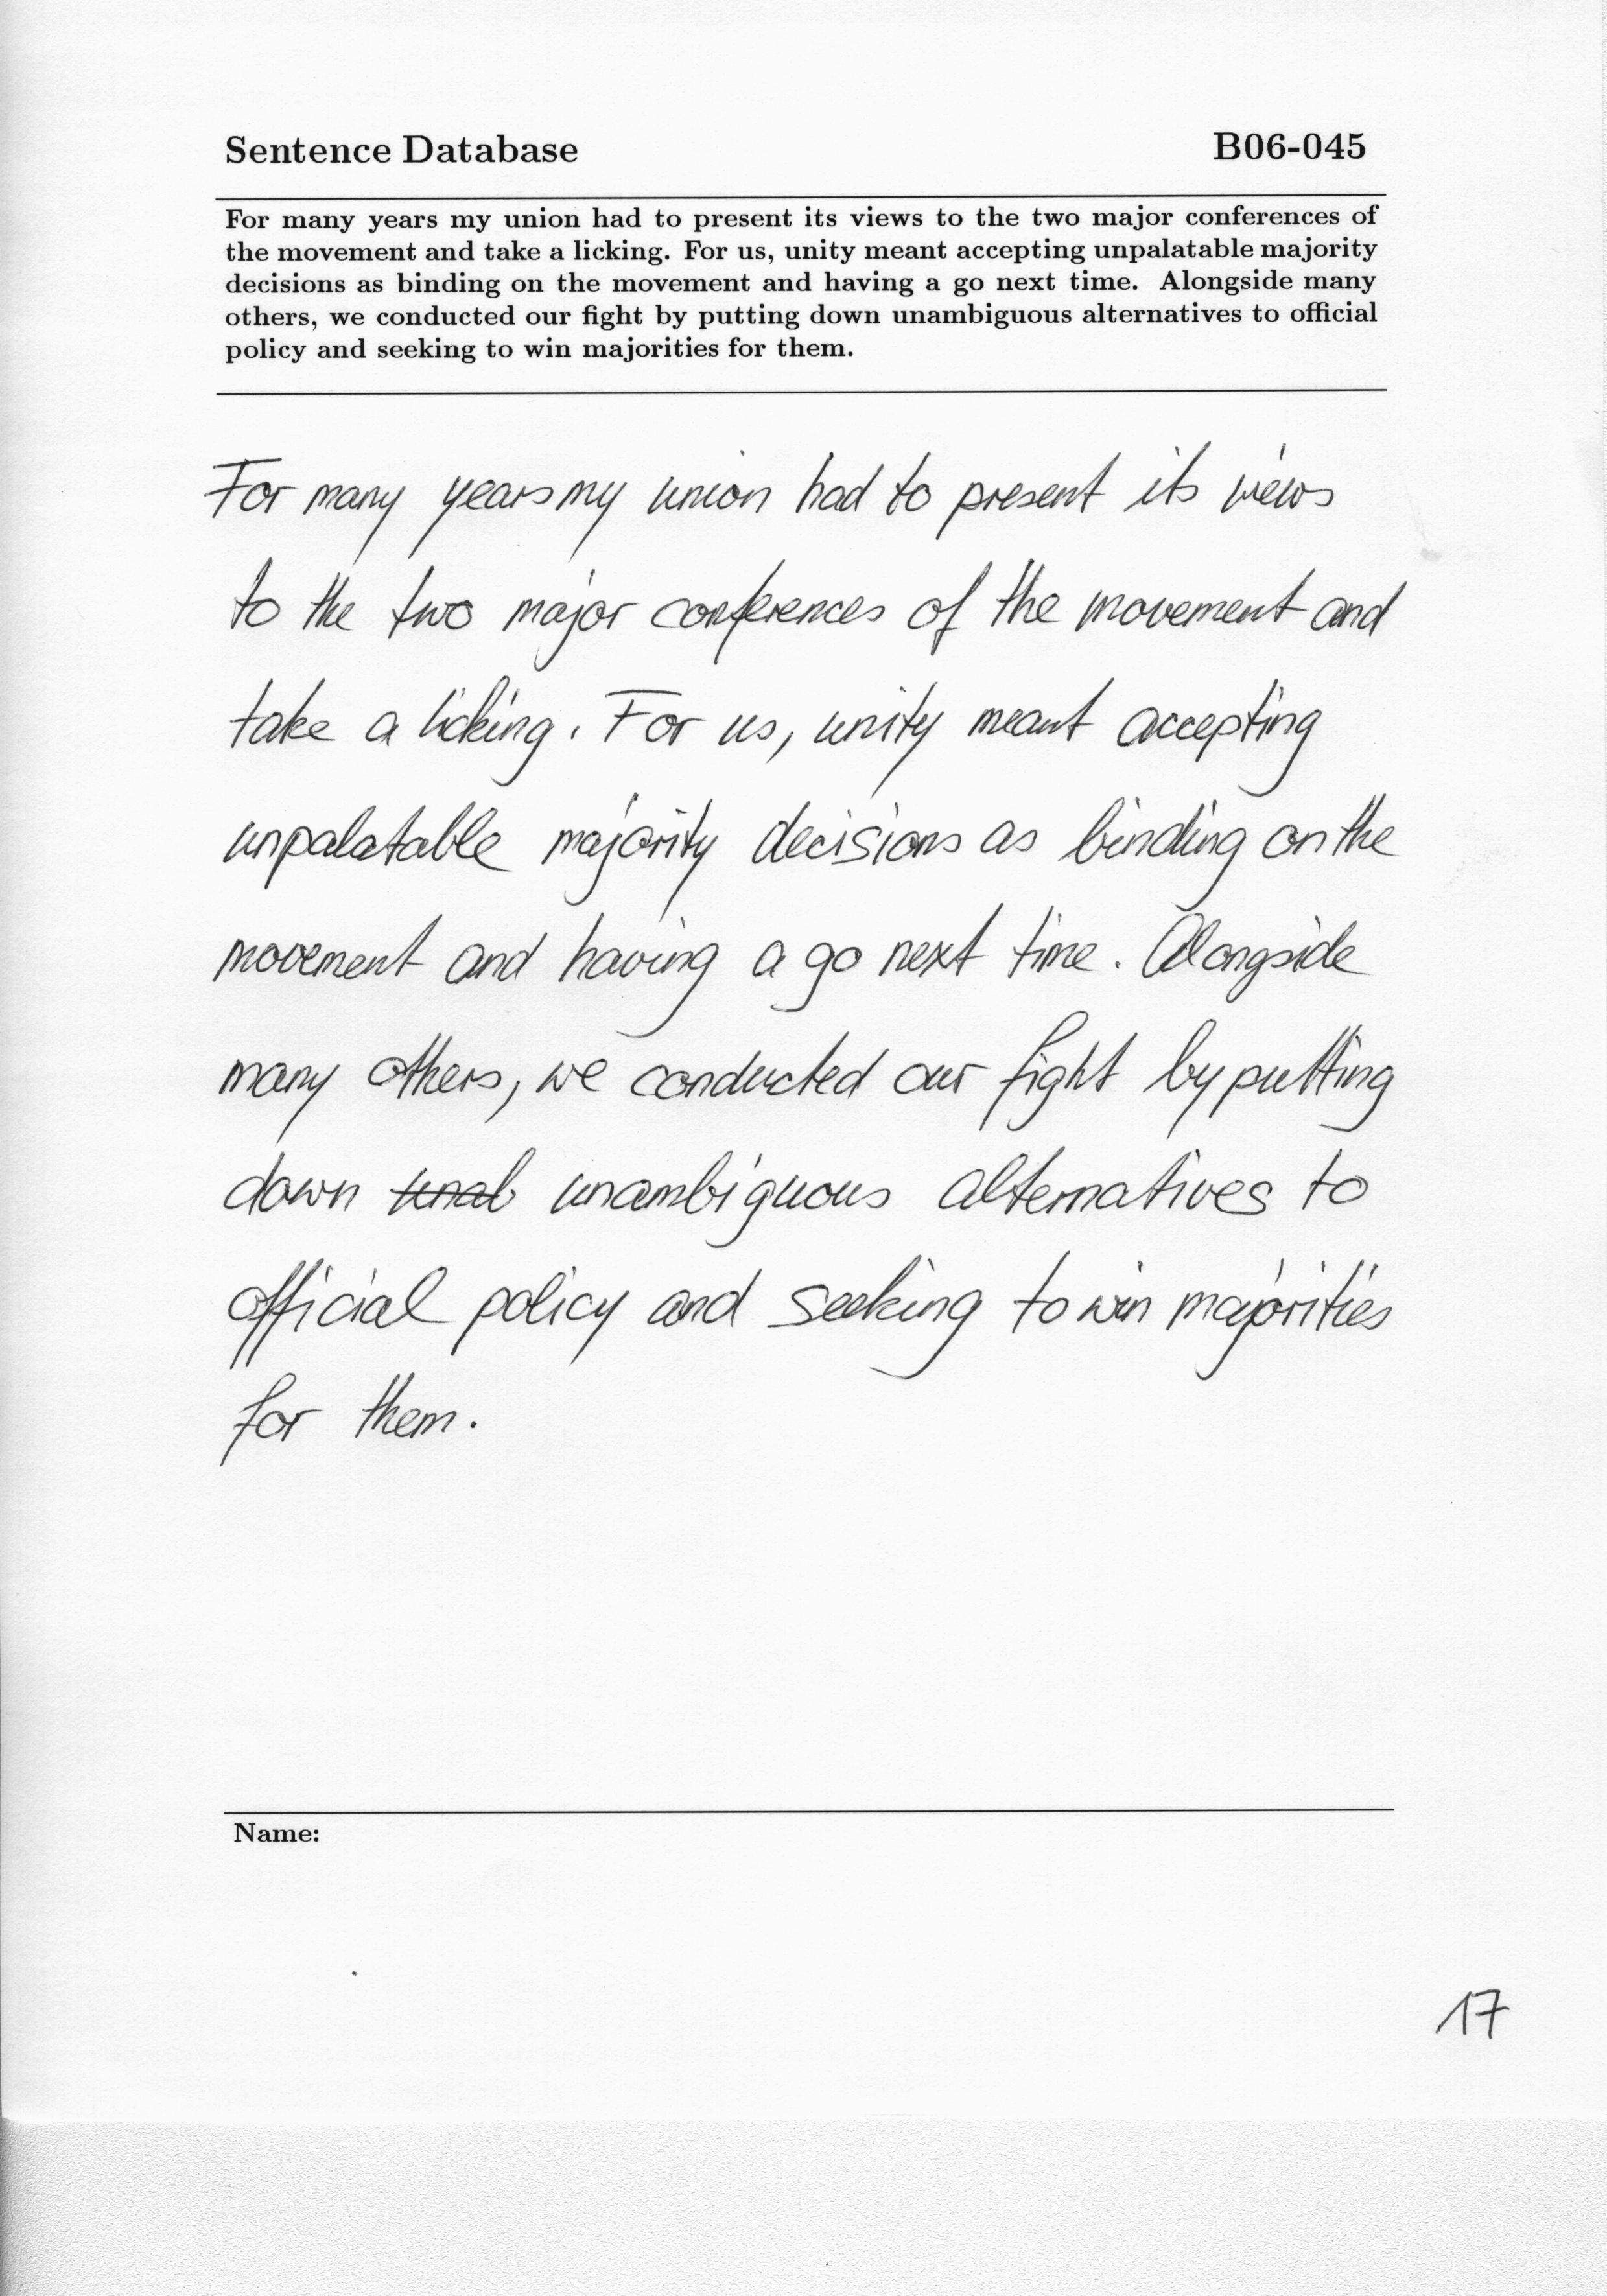 Sentence Database B06-045
For many years my union had to present its views to the two major conferences of
the movement and take a licking. For us, unity meant accepting unpalatable majority
decisions as binding on the movement and having a go next time. Alongside many
others, we conducted our fight by putting down unambiguous alternatives to official
policy and seeking to win majorities for them.
For many years my union had to present its views
to the two major conferences of the movement and
take a licking. For us, unity meant accepting
unpalatable majority decisions as binding on the
movement and having a go next time. Alongside
many others, we conducted our fight by putting
down unab unambiguous alternatives to
official policy and seeking to win majorities
for them.
Name:
17